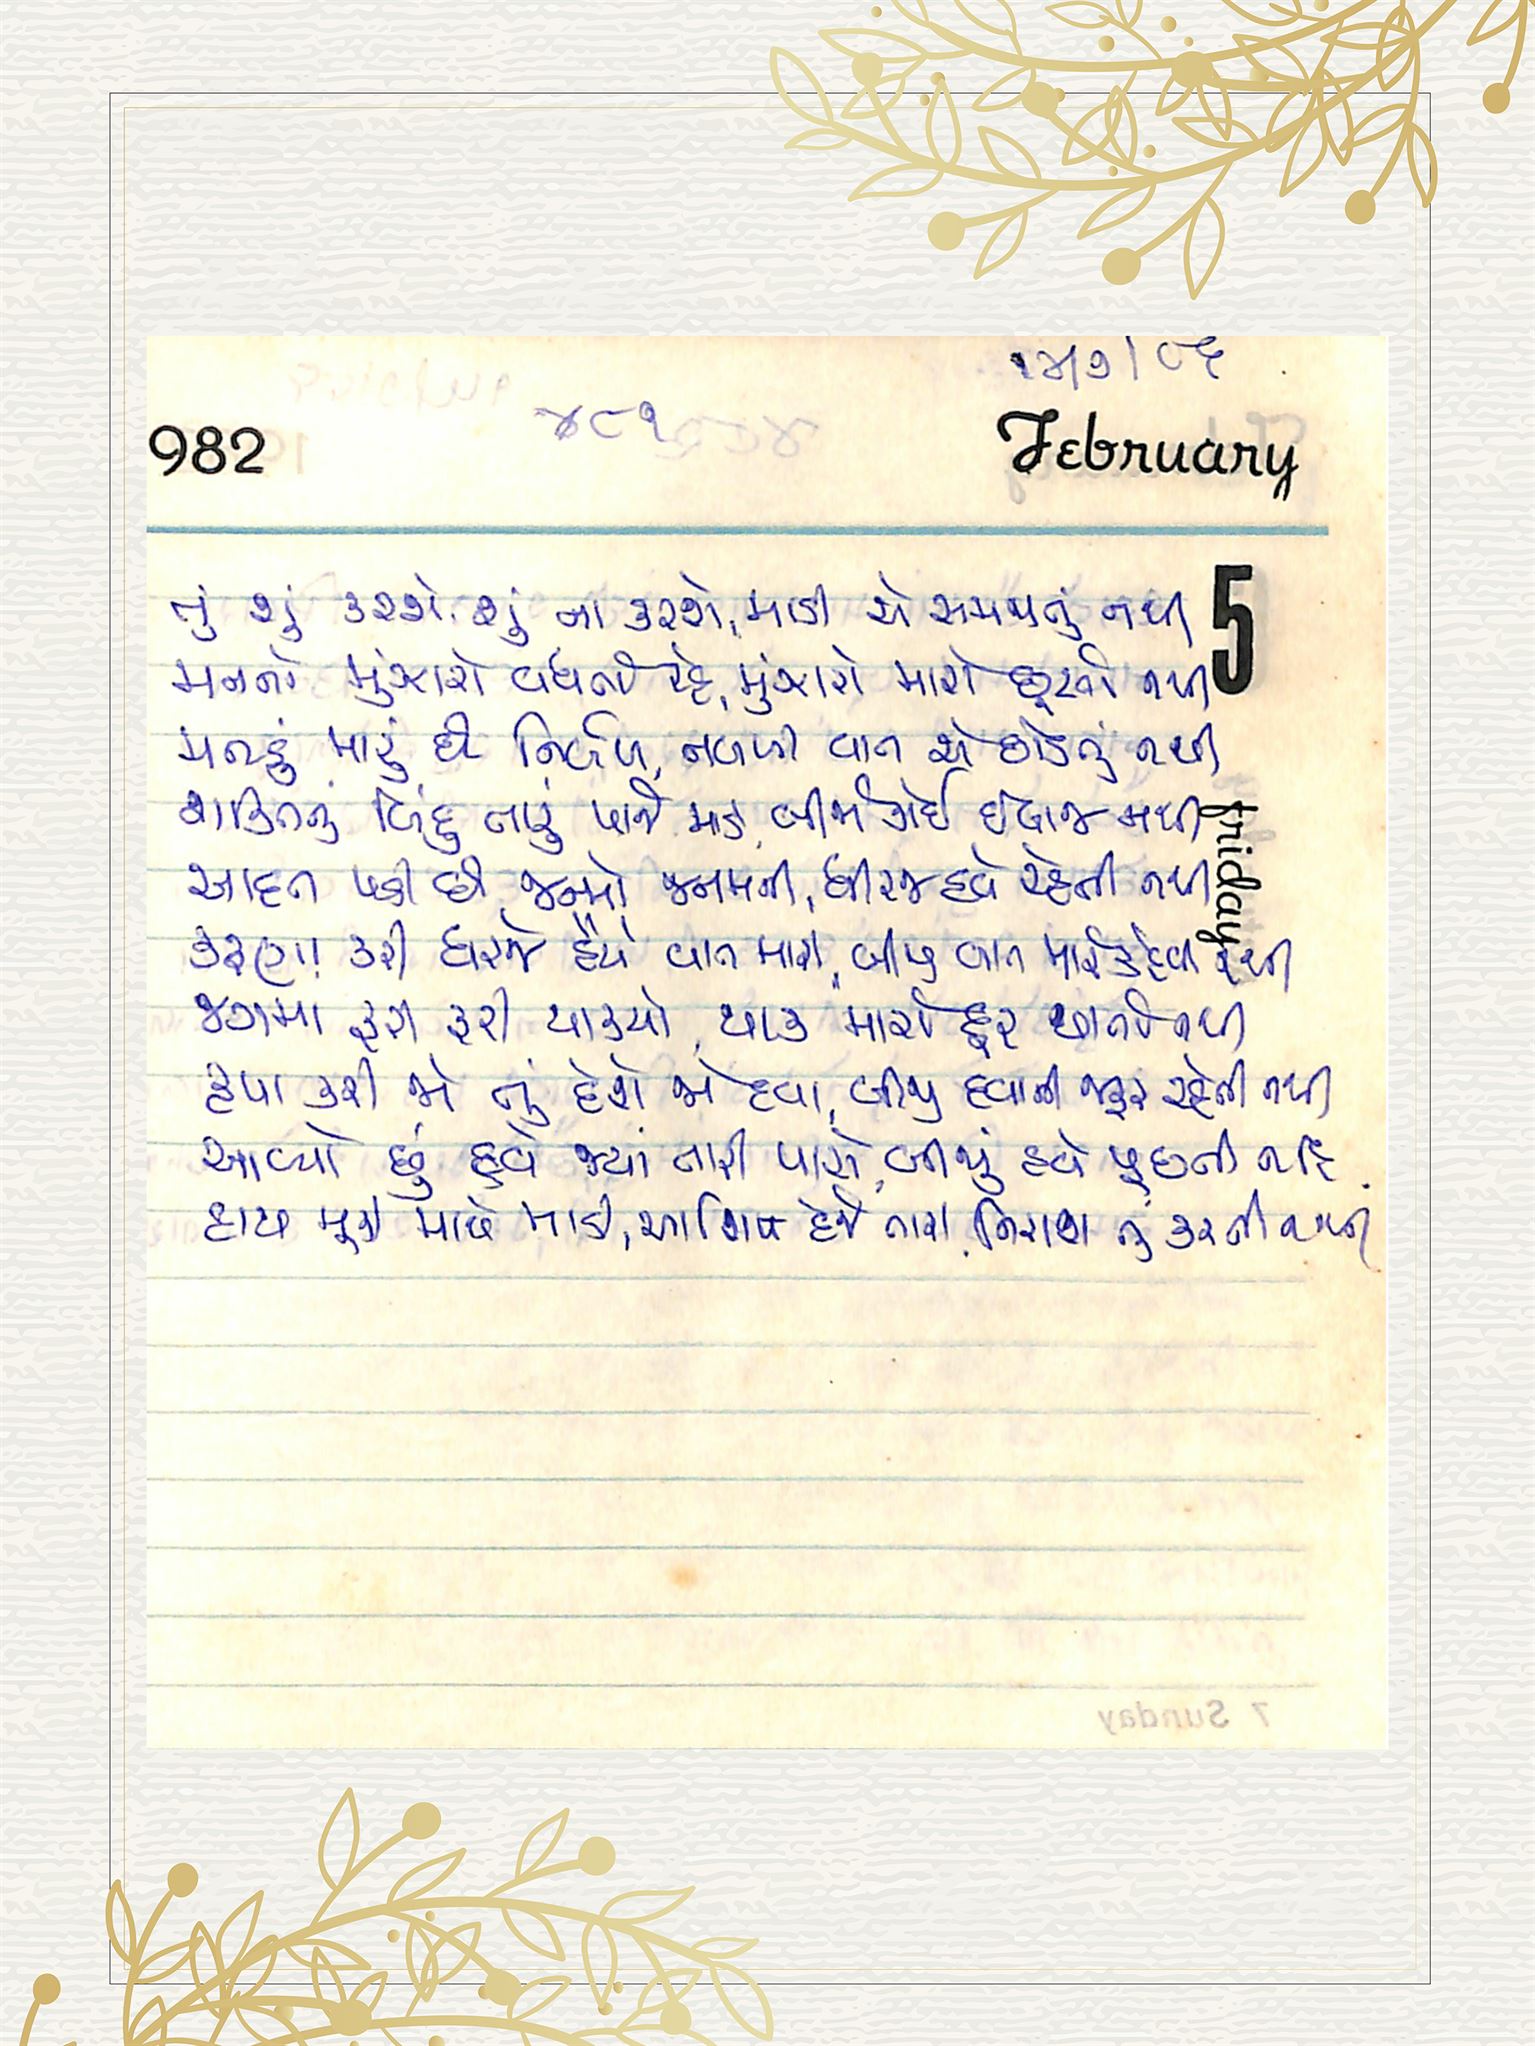 ૨૪/૭/૮૬
982 ૪૮૧ February
5
તું શું કરશે, શું ના કરશે, માડી એ સમજાતું નથી
મનનો મુંઝારો વધતો રહે, મુંઝારો મારો છૂટતો નથી
મનડું મારું છે નિર્બળ, નબળી વાત એ છોડતું નથી
શક્તિનું બિંદુ તારું પાજે માડી, બીજો કોઈ ઈલાજ નથી
આદત પડી છે જન્મો જનમની, ધીરજ હવે રહેતી નથી
કરૂણા કરી ધરજે હૈયે વાત મારી, બીજી વાત મારે કહેવી નથી
જગમાં ફરી ફરી થાક્યો, થાક મારો દૂર થાતો નથી
કૃપા કરી જો તું દેશે એ દવા, બીજી દવાની જરૂર રહેતી નથી
આવ્યો છું હવે જ્યાં તારી પાસે, બીજું હવે પૂછતી નહિ
હાથ મૂકી માથે માડી, આશિષ દેજે તારી, નિરાશ તું કરતી નથી
Friday
7 Sunday